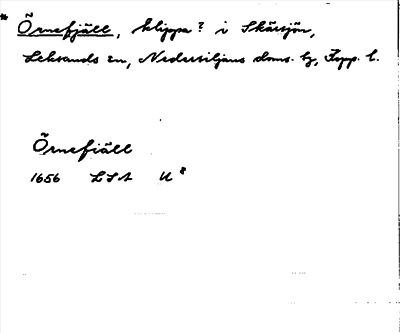 * Örnefjäll, klippa? i Skärsjön,
Leksands sn, Nedansiljans doms. hg, Kopp. l.
Örnefiäll
1656 LSA U⁸